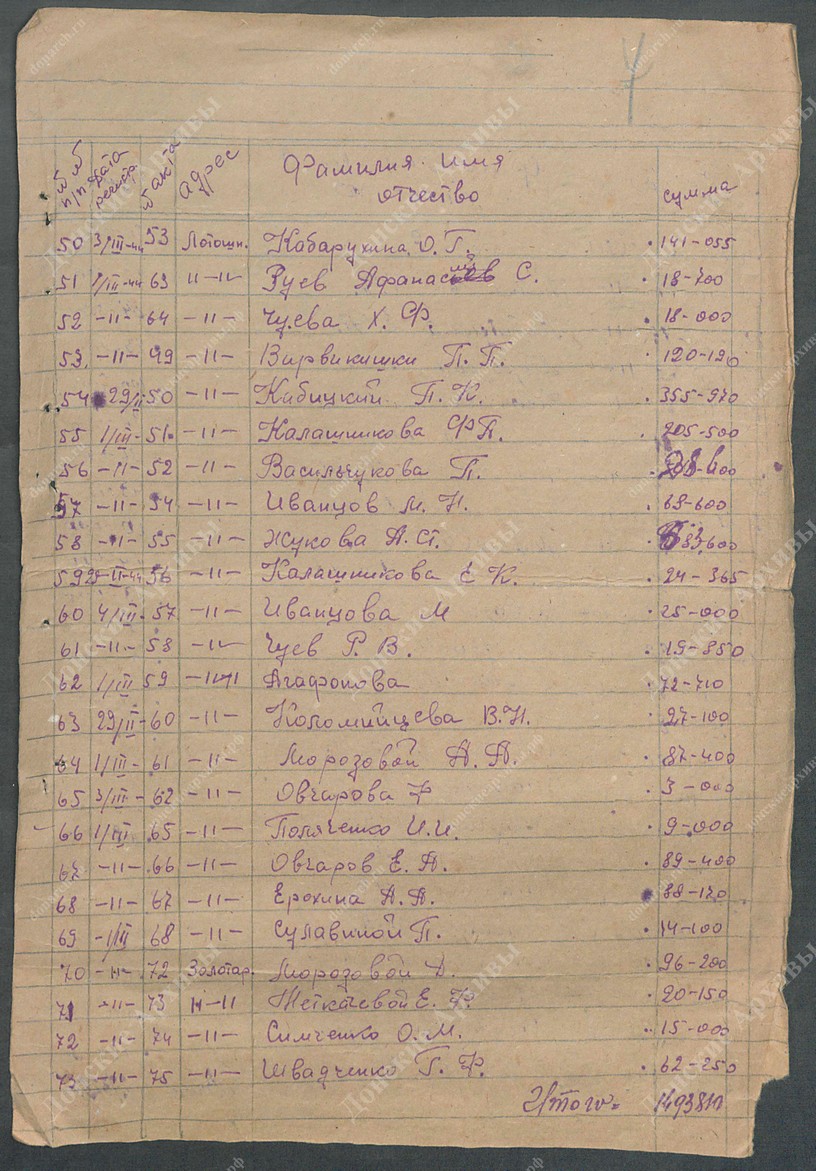 №№ п/п дата регистр. № акта адрес Фамилия имя отчество сумма
50 3/III-44 53 Лотошн. Кабарухина О. Г. 141-055
51 1/III-44 63 -11- Зуев Афанасий С. 18-700
52 -11- 64 -11- Чуева Х. Ф. 18-000
53. -11- 49 -11- П. П. 120-190
54 29/II 50 -11- Кибицкий П. К. 355-970
55 1/III- 51 -11- Калашникова Ф П. 205-500
56 -11- 52 -11- Васильчукова П.
57 -11- 54 -11- Иванцов М. Н. 69-600
58 -11- 55 -11- Жукова А. Ст.
59 29-II-44 56 -11- Калашникова Е К. 24-365
60 4/III- 57 -11- Иванцова М 25-000
61 -11- 58 -11- Чуев Р. В. 19-850
62 1/III 59 -11- Агафонова 72-710
63 29/II- 60 -11- Коломийцева В. Н. 27-100
64 1/III- 61 -11- Морозовой А. А. 87-400
65 3/III- 62 -11- Овчарова Ф 3-000
66 1/III 65 -11- Поляченко И. И. 9-000
67 -11- 66 -11- Овчаров Е. А. 89-400
68 -11- 67 -11- Ерохина А. А. 88-170
69 -1/III 68 -11- Сулавиной П. 14-100
70 -11- 72 Золотар. Морозовой Д. 96-200
71 -11- 73 -11- Е. Ф. 20-150
72 -11- 74 -11- Симченко О. М. 15-000
73 -11- 75 -11- Швадченко Г. Ф. 62-250
Итого=